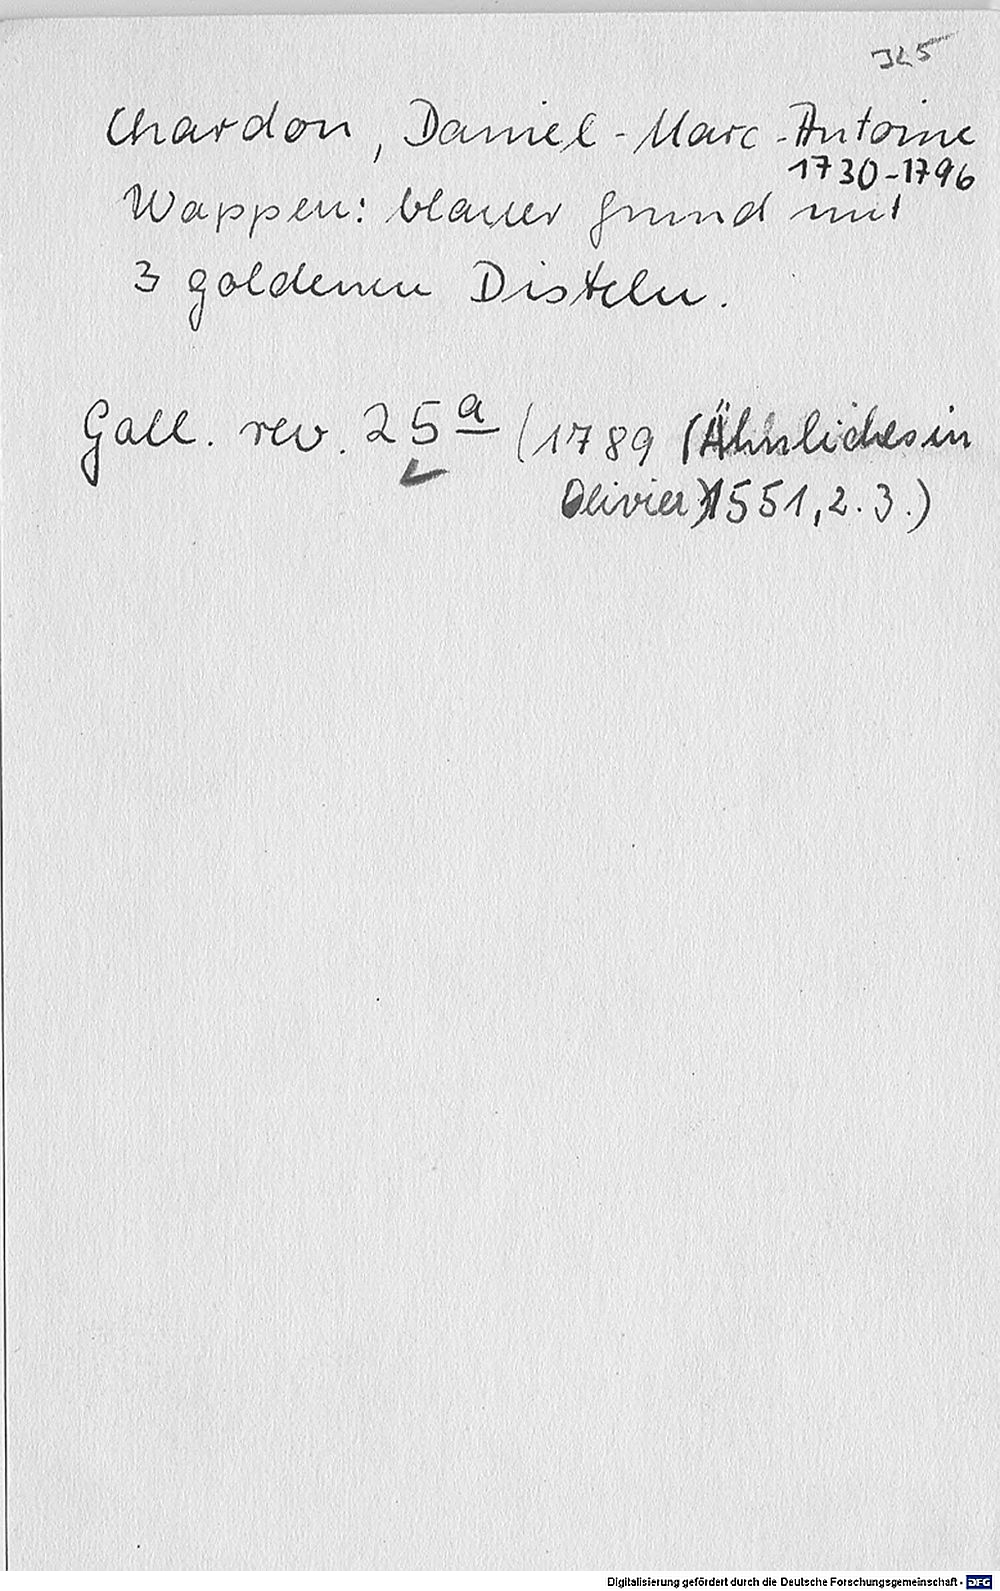 325
Chardon, Daniel-Marc-Antoine
1730-1796
Wappen: blauer Grund mit
3 goldenen Disteln.
Gall. rev. 25 a (1789 (Ähnliches in
Olivier) 1551, 2. 3.)
Digitalisierung gefördert durch die Deutsche Forschungsgemeinschaft - DFG